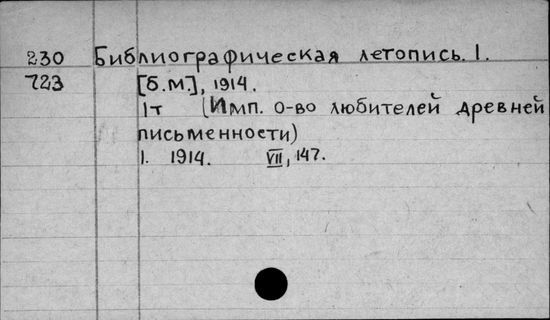 230 Библиографическая летопись. 1.
723 [б.м.], 1914.
1т (Имп. о-во любителей древней
письменности)
1. 1914. VII, 147.